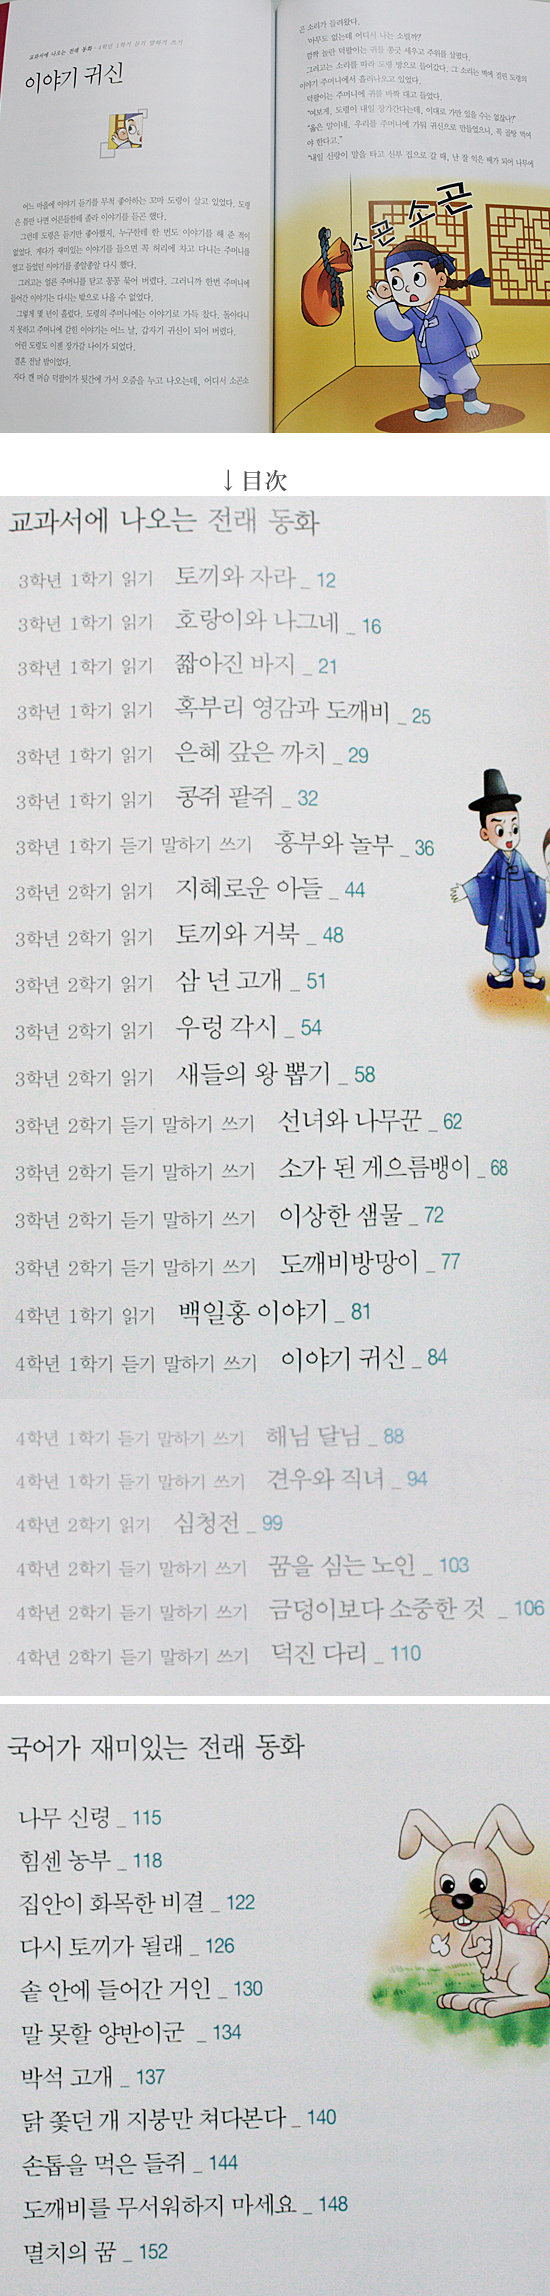 교과서에 나오는 전래 동화 · 4학년 1학기 듣기 말하기 쓰기
이야기 귀신
어느 마을에 이야기 듣기를 무척 좋아하는 꼬마 도령이 살고 있었다. 도령
은 틈만 나면 어른들한테 졸라 이야기를 듣곤 했다.
그런데 도령은 듣기만 좋아했지, 누구한테 한 번도 이야기를 해 준 적이
없었다. 게다가 재미있는 이야기를 들으면 꼭 허리에 차고 다니는 주머니를
열고 들었던 이야기를 종알종알 다시 했다.
그러고는 얼른 주머니를 닫고 꽁꽁 묶어 버렸다. 그러니까 한번 주머니에
들어간 이야기는 다시는 밖으로 나올 수 없었다.
그렇게 몇 년이 흘렀다. 도령의 주머니에는 이야기로 가득 찼다. 돌아다니
지 못하고 주머니에 갇힌 이야기는 어느 날, 갑자기 귀신이 되어 버렸다.
어린 도령도 이젠 장가갈 나이가 되었다.
결혼 전날 밤이었다.
자다 깬 머슴 덕팔이가 뒷간에 가서 오줌을 누고 나오는데, 어디서 소곤소
곤 소리가 들려왔다.
아무도 없는데 어디서 나는 소릴까?
깜짝 놀란 덕팔이는 귀를 쫑긋 세우고 주위를 살폈다.
그러고는 소리를 따라 도령 방으로 들어갔다. 그 소리는 벽에 걸린 도령의
이야기 주머니에서 흘러나오고 있었다.
덕팔이는 주머니에 귀를 바짝 대고 들었다.
"여보게, 도령이 내일 장가간다는데, 이대로 가만 있을 수는 없잖나?"
"옳은 말이네. 우리를 주머니에 가둬 귀신으로 만들었으니, 꼭 골탕 먹여
야 한다고."
"내일 신랑이 말을 타고 신부 집으로 갈 때, 난 잘 익은 배가 되어 나무에
소곤 소곤
↓目次
교과서에 나오는 전래 동화
3학년 1학기 읽기 토끼와 자라 _ 12
3학년 1학기 읽기 호랑이와 나그네 _ 16
3학년 1학기 읽기 짧아진 바지 _ 21
3학년 1학기 읽기 혹부리 영감과 도깨비 _ 25
3학년 1학기 읽기 은혜 갚은 까치 _ 29
3학년 1학기 읽기 콩쥐 팥쥐 _ 32
3학년 1학기 듣기 말하기 쓰기 흥부와 놀부 _ 36
3학년 2학기 읽기 지혜로운 아들 _ 44
3학년 2학기 읽기 토끼와 거북 _ 48
3학년 2학기 읽기 삼 년 고개 _ 51
3학년 2학기 읽기 우렁 각시 _ 54
3학년 2학기 읽기 새들의 왕 뽑기 _ 58
3학년 2학기 듣기 말하기 쓰기 선녀와 나무꾼 _ 62
3학년 2학기 듣기 말하기 쓰기 소가 된 게으름뱅이 _ 68
3학년 2학기 듣기 말하기 쓰기 이상한 샘물 _ 72
3학년 2학기 듣기 말하기 쓰기 도깨비방망이 _ 77
4학년 1학기 읽기 백일홍 이야기 _ 81
4학년 1학기 듣기 말하기 쓰기 이야기 귀신 _ 84
4학년 1학기 듣기 말하기 쓰기 해님 달님 _ 88
4학년 1학기 듣기 말하기 쓰기 견우와 직녀 _ 94
4학년 2학기 읽기 심청전 _ 99
4학년 2학기 듣기 말하기 쓰기 꿈을 심는 노인 _ 103
4학년 2학기 듣기 말하기 쓰기 금덩이보다 소중한 것 _ 106
4학년 2학기 듣기 말하기 쓰기 덕진 다리 _ 110
국어가 재미있는 전래 동화
나무 신령 _ 115
힘센 농부 _ 118
집안이 화목한 비결 _ 122
다시 토끼가 될래 _ 126
솥 안에 들어간 거인 _ 130
말 못할 양반이군 _ 134
박석 고개 _ 137
닭 쫓던 개 지붕만 쳐다본다 _ 140
손톱을 먹은 들쥐 _ 144
도깨비를 무서워하지 마세요 _ 148
멸치의 꿈 _ 152